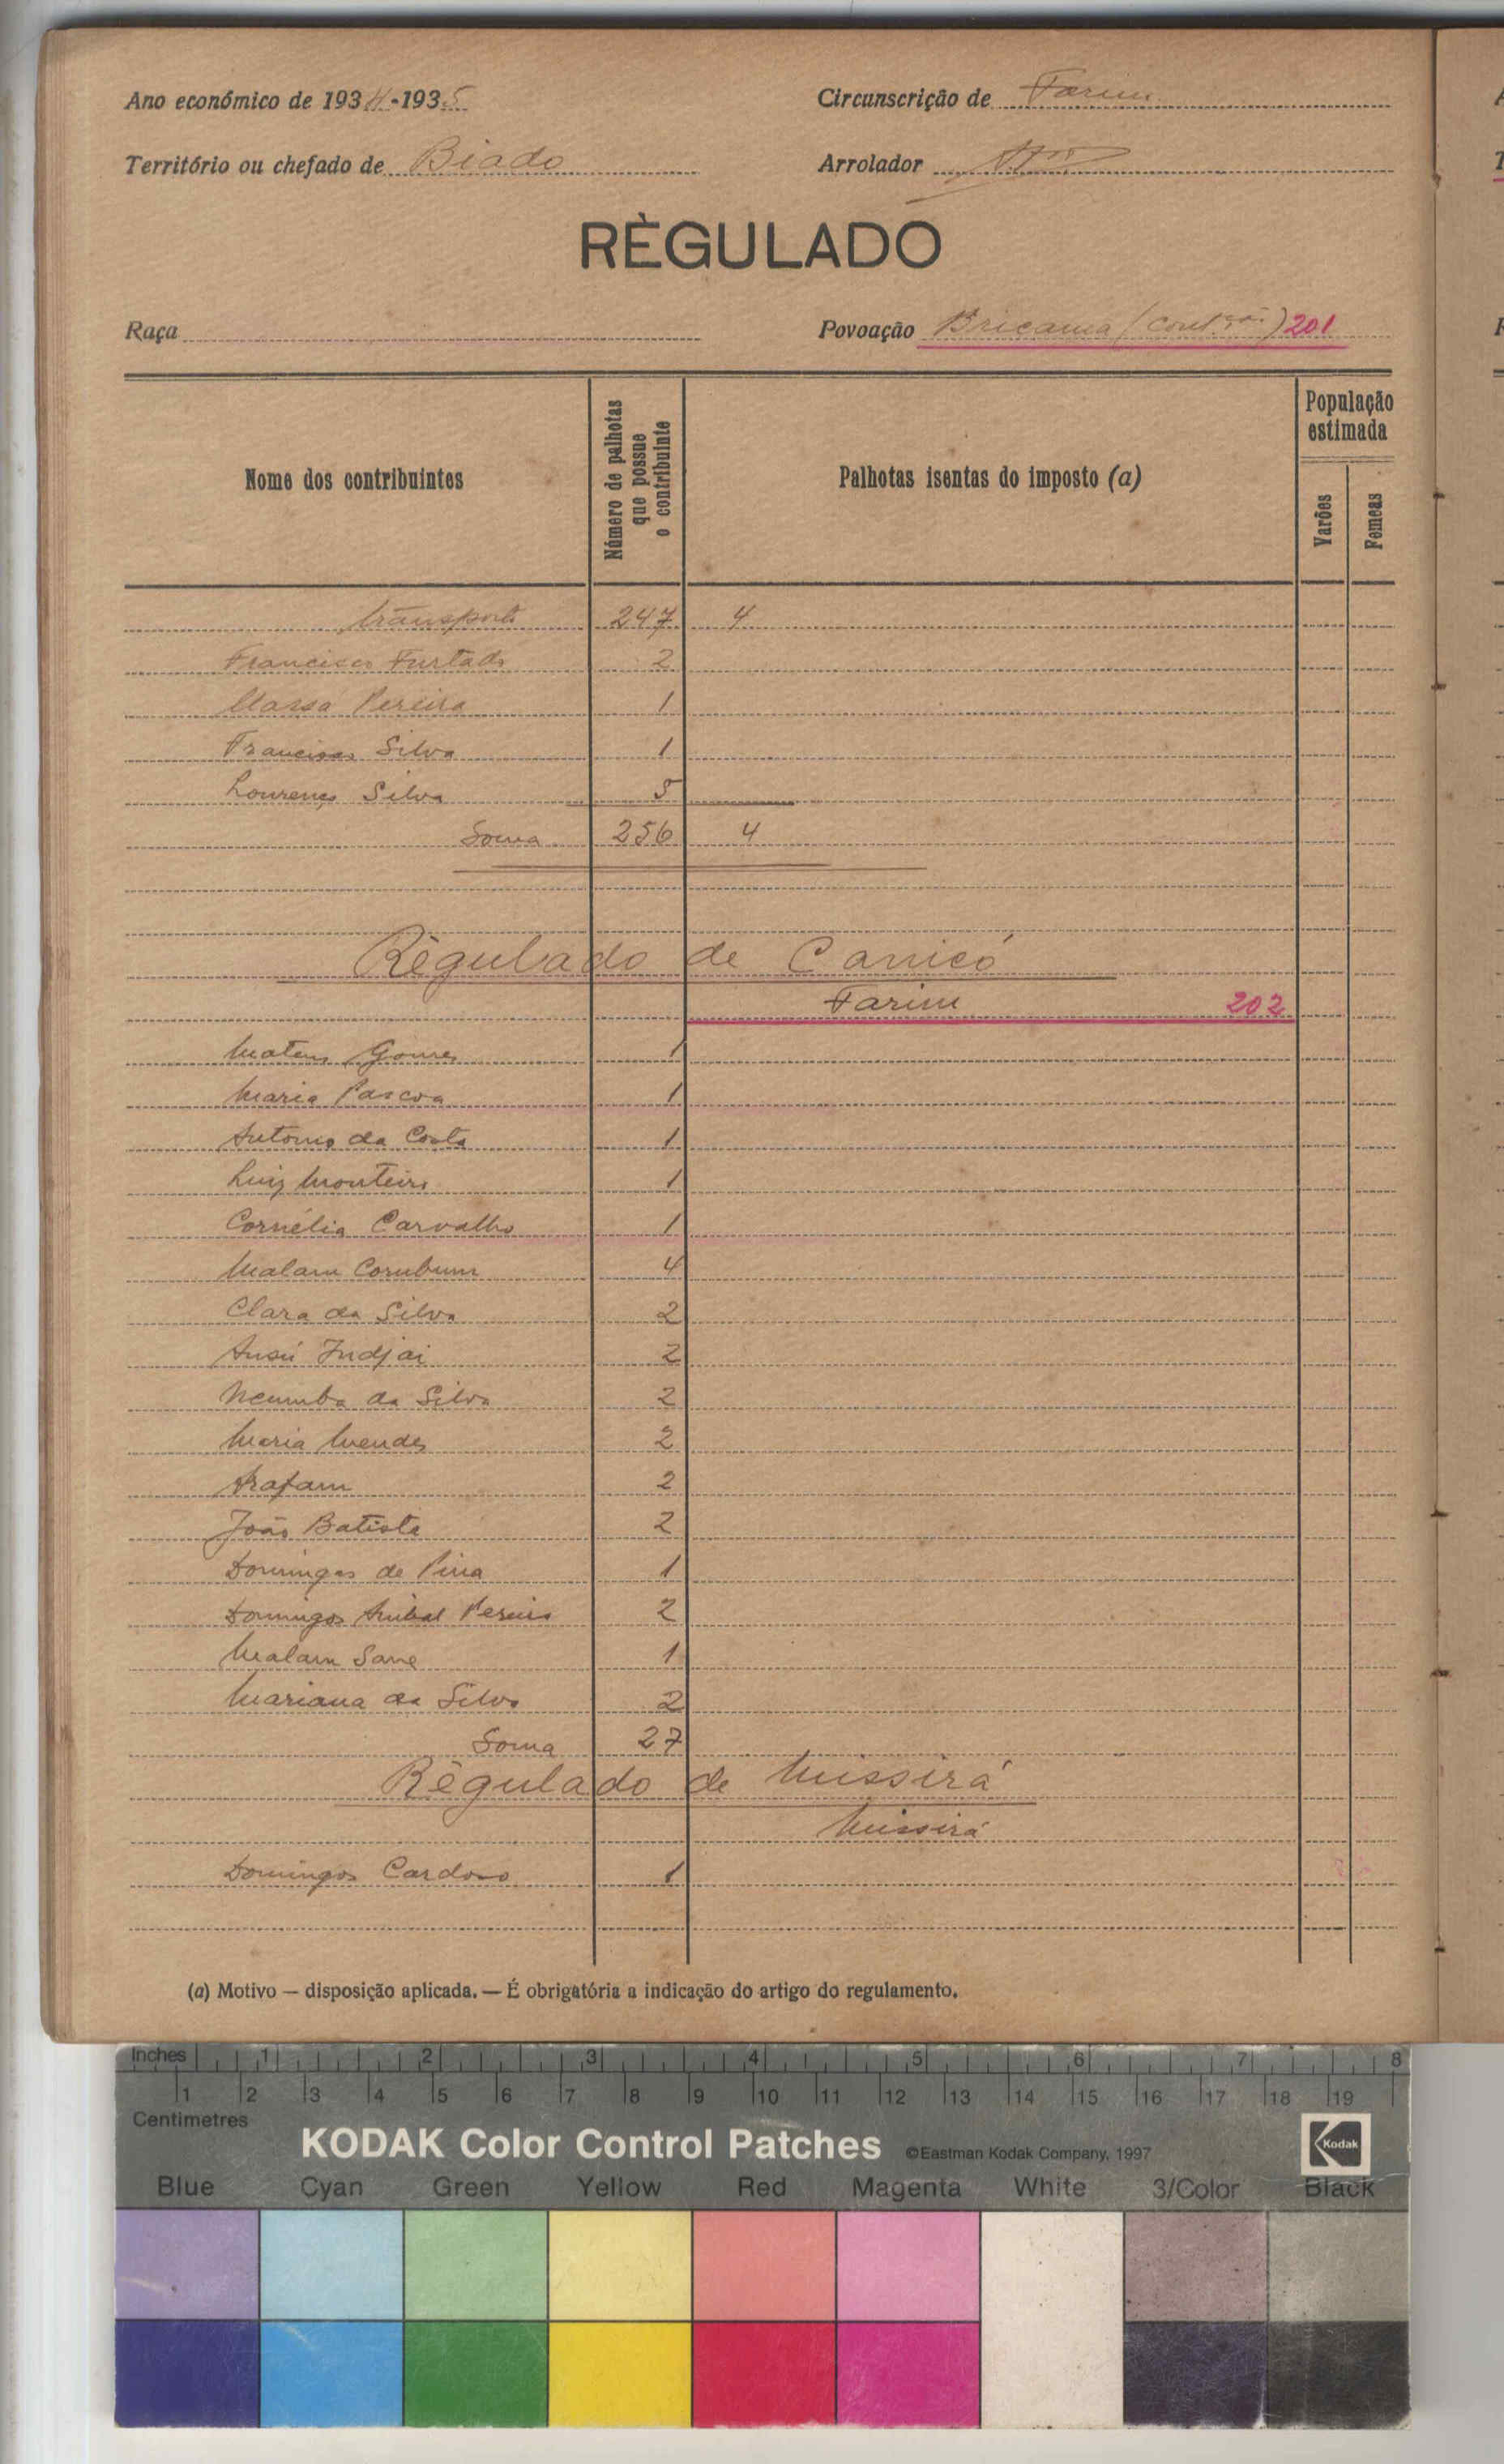 Ano económico de 1934-1935
Circunscrição de Farim
Território ou chefado de Biado
Arrolador
RÈGULADO
Raça
Povoação Bricama (cont.ção) 201
Nome dos contribuintes
Número de palhotas que possue o contribuinte
Palhotas isentas do imposto (a)
População estimada
Varões
Femeas
Transporte 247 4
Francisco Furtado 2
Pereira 1
Francisco Silva 1
Lourenço Silva 5
Soma 256 4
Règulado de Canicó
Farim 202
Mateus Gomes 1
Maria Pascoa 1
Antonio da Costa 1
Luiz Monteiro 1
Cornélia Carvalho 1
Malam Corubum 4
Clara da Silva 2
Ansú Indjai 2
Neumba da Silva 2
Maria Mendes 2
Arafam 2
João Batista 2
Domingas de Pina 1
Domingos Anibal Pereira 2
Malam Sane 1
Mariana da Silva 2
Soma 27
Règulado de Missirá
Missirá
Domingos Cardoso 1
(a) Motivo — disposição aplicada. — É obrigatória a indicação do artigo do regulamento.
Inches 1 2 3 4 5 6 7 8
1 2 3 4 5 6 7 8 9 10 11 12 13 14 15 16 17 18 19
Centimetres
KODAK Color Control Patches ©Eastman Kodak Company, 1997 Kodak
Blue Cyan Green Yellow Red Magenta White 3/Color Black